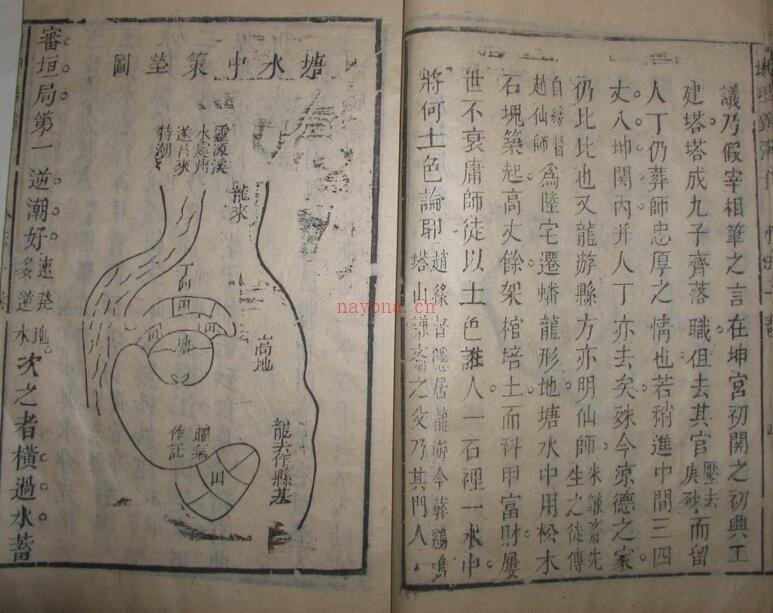 議乃假宰相筆之言在坤宮初開之初興工
建塔塔成九子齊落職但去其官壓去庚砂而留
人丁仍葬師忠厚之情也若稍進中間三四
丈八坤関內并人丁亦去矣殊今凉德之家
仍比比也又龍游縣方亦明仙師朱謙齋先生之徒傳
自緣督趙仙師為陸宅遷蟠龍形地塘水中用松木
石塊築起高丈餘架棺培土而科甲富財屢
世不衰庸師徒以土色誑人一石裡一水中
將何土色論耶趙緣督隱居龍游今葬鷄鳴
塔山謙齋之父乃其門人
塘水中築塋圖
靈源溪
水處州
遂昌來
特潮
龍來
丁向
田
田
田
塘
田
高地
龍去作縣基
田
審垣局第一逆潮好速発地多逆水次之者橫過水蓄
nayona.cn